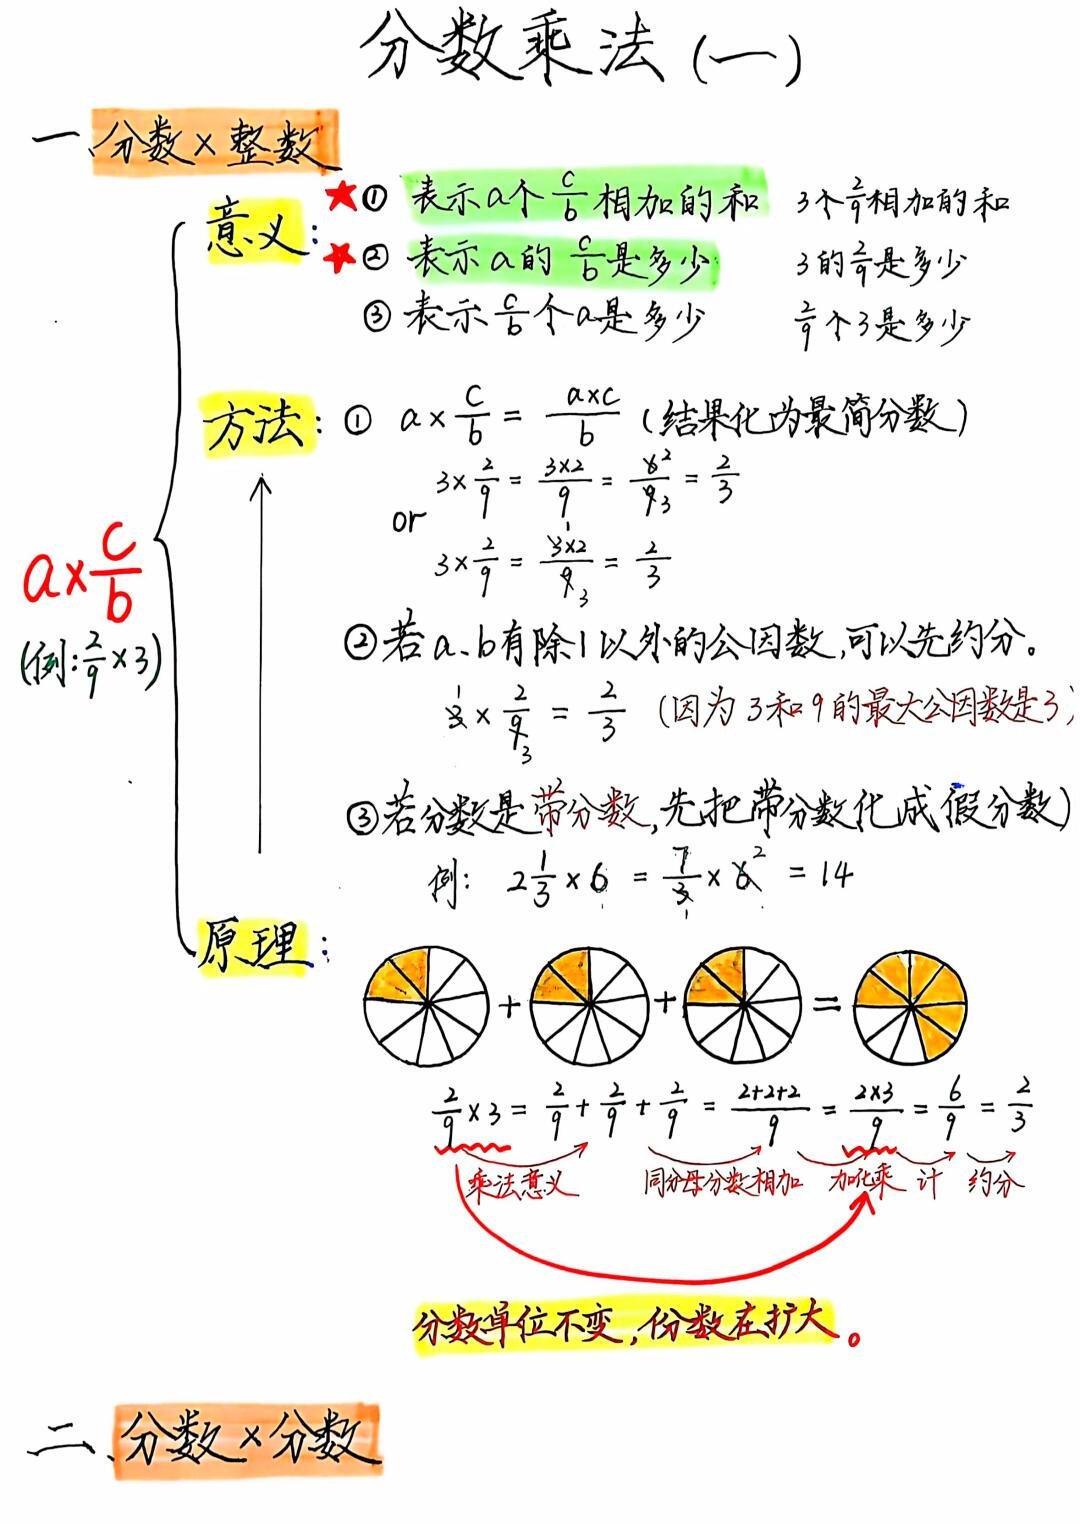 分数乘法(一)
一、分数×整数
意义:
★① 表示a个c/b相加的和 3个2/9相加的和
★② 表示a的c/b是多少 3的2/9是多少
③ 表示c/b个a是多少 2/9个3是多少
方法: ① a×c/b = a×c/b (结果化为最简分数)
3×2/9 = 3×2/9 = 6²/9₃ = 2/3
or
3×2/9 = 3¹×2/9₃ = 2/3
a×c/b
(例:2/9×3)
②若a、b有除1以外的公因数,可以先约分。
3¹×2/9₃ = 2/3 (因为3和9的最大公因数是3)
③若分数是带分数,先把带分数化成假分数)
例: 2 1/3×6 = 7/3₁×6² = 14
原理:
+ + =
2/9×3 = 2/9+2/9+2/9 = 2+2+2/9 = 2×3/9 = 6/9 = 2/3
乘法意义 同分母分数相加 加化乘 计 约分
分数单位不变,份数在扩大。
二、分数×分数